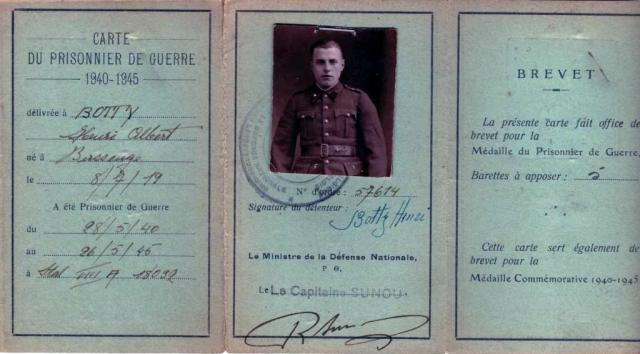 CARTE
DU PRISONNIER DE GUERRE
1940-1945
délivrée à BOTTY
Henri Albert
né à
le 8/ /19
A été Prisonnier de Guerre
du 28/5/40
au 26/5/45
à Stal VIII A
N° d'ordre : 57614
Signature du détenteur : Botty Henri
Le Ministre de la Défense Nationale,
P. O.
Le Le Capitaine SUNOU.
BREVET
La présente carte fait office de
brevet pour la
Médaille du Prisonnier de Guerre.
Barettes à apposer : 5
Cette carte sert également de
brevet pour la
Médaille Commémorative 1940-1945